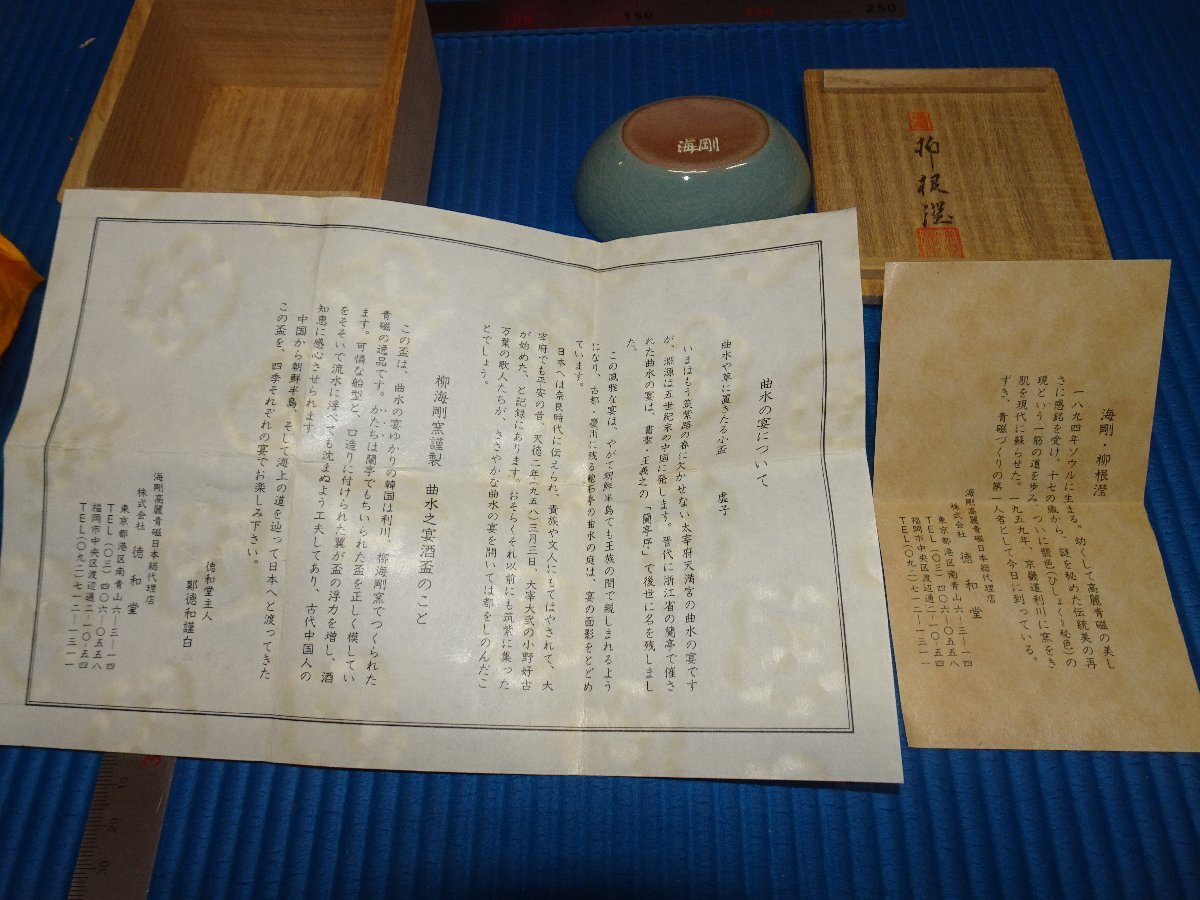 100 150 200 250
海剛
柳根瀅
曲水の宴について
曲水や草に置きたる小盃 虚子
いまはもう筑紫路の春に欠かせない太宰府天満宮の曲水の宴です
が、淵源は五世紀末の中国に発します。晋代に浙江省の蘭亭で催さ
れた曲水の宴は、書聖・王羲之の「蘭亭序」で後世に名を残しまし
た。
この風雅な宴は、やがて朝鮮半島でも王族の間で親しまれるよう
になり、古都・慶州に残る鮑石亭の曲水の庭は、宴の面影をとどめ
ています。
日本へは奈良時代に伝えられ、貴族や文人にもてはやされて、大
宰府でも平安の昔、天徳二年(九五八)三月三日、大宰大弐の小野好古
が始めた、と記録にあります。おそらくそれ以前にも筑紫に集った
万葉の歌人たちが、ささやかな曲水の宴を開いては都をしのんだこ
とでしょう。
柳海剛窯謹製 曲水之宴酒盃のこと
この盃は、曲水の宴ゆかりの韓国は利川、柳海剛窯でつくられた
青磁の逸品です。かたちは蘭亭でもちいられた盃を正しく模してい
ます。可憐な船型と、口造りに付けられた翼が盃の浮力を増し、酒
をそそいで流水に浮べても沈まぬよう工夫してあり、古代中国人の
知恵に感心させられます。
中国から朝鮮半島、そして海上の道を辿って日本へと渡ってきた
この盃を、四季それぞれの宴でお楽しみ下さい。
徳和堂主人
鄭徳和謹白
海剛高麗青磁日本総代理店
株式会社 徳和堂
東京都港区南青山六—三—一四
TEL(〇三)四〇六—〇五五八
福岡市中央区渡辺通二—一〇—五四
TEL(〇九二)七一二—一三一一
海剛・柳根瀅
一八九四年ソウルに生まる。幼くして高麗青磁の美し
さに感銘を受け、十七の歳から、謎を秘めた伝統美の再
現という一筋の道を歩み、ついに翡色(ひしょくり秘色)の
肌を現代に蘇らせた。一九五九年、京畿道利川に窯をき
ずき、青磁づくりの第一人者として今日に到っている。
海剛高麗青磁日本総代理店
株式会社 徳和堂
東京都港区南青山六—三—一四
TEL(〇三)四〇六—〇五五八
福岡市中央区渡辺通二—一〇—五四
TEL(〇九二)七一二—一三一一
10
20
30